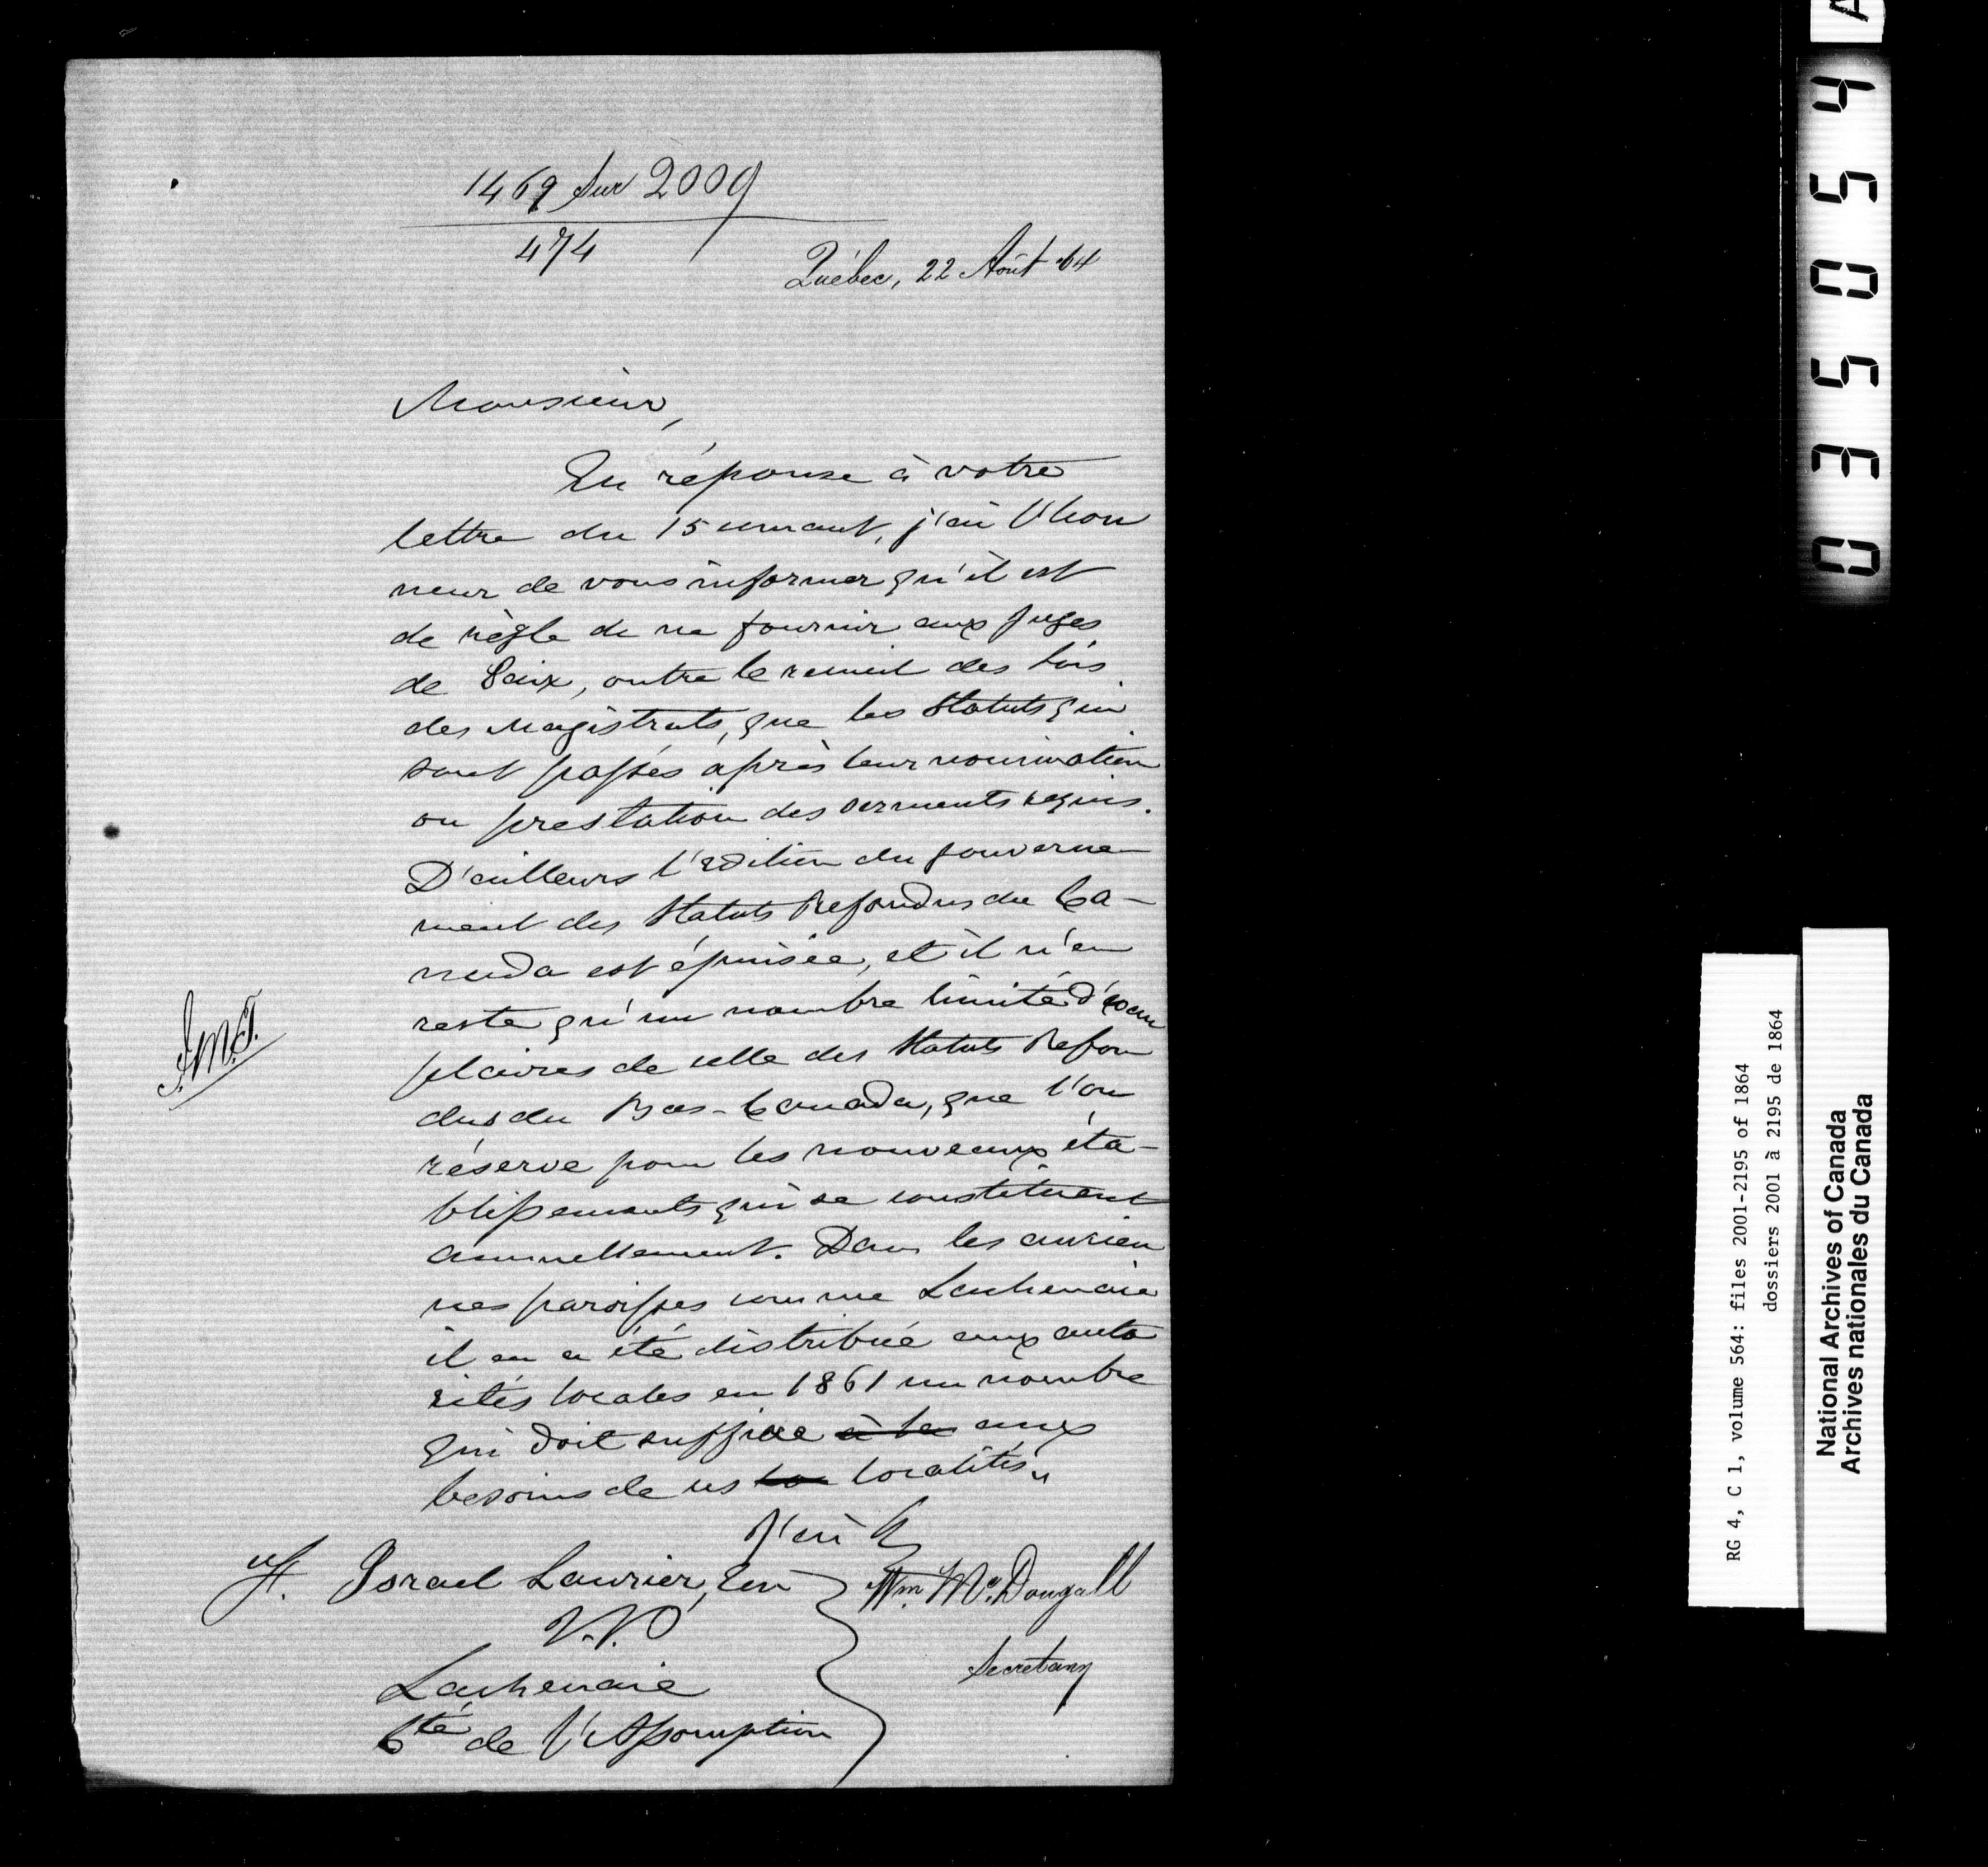 1469 sur 2009
474
Québec, 22 Août 64
Monsieur,
En réponse à votre
lettre du 15 courant, j'ai l'hon
neur de vous informer qu'il est
de règle de ne fournir aux Juges
de Paix, outre le recueil des lois
des Magistrats, que les Statuts qui
sont passés après leur nomination
ou prestation des serments requis.
D'ailleurs l'edition du gouverne
ment des Statuts Refondus du Ca-
nada est épuisée, et il n'en
reste qu'un nombre limité d'exem
plaires de celle des Statuts Refon
dus du Bas-Canada, que l'on
réserve pour les nouveaux éta-
blissements qui se constituent
annuellement. Dans les ancien
nes paroisses comme Lachenaie
il en a été distribué aux auto
rités locales en 1861 un nombre
qui doit suffire à les aux
besoins de ces lo localités.
J'ai
Israel Laurier, Eur
Wm McDougall
J.P.
Secretary
Lachenaie
Cté de l'Assomption
J.M.T.
035054
RG 4, C 1, volume 564: files 2001-2195 of 1864
dossiers 2001 à 2195 de 1864
National Archives of Canada
Archives nationales du Canada